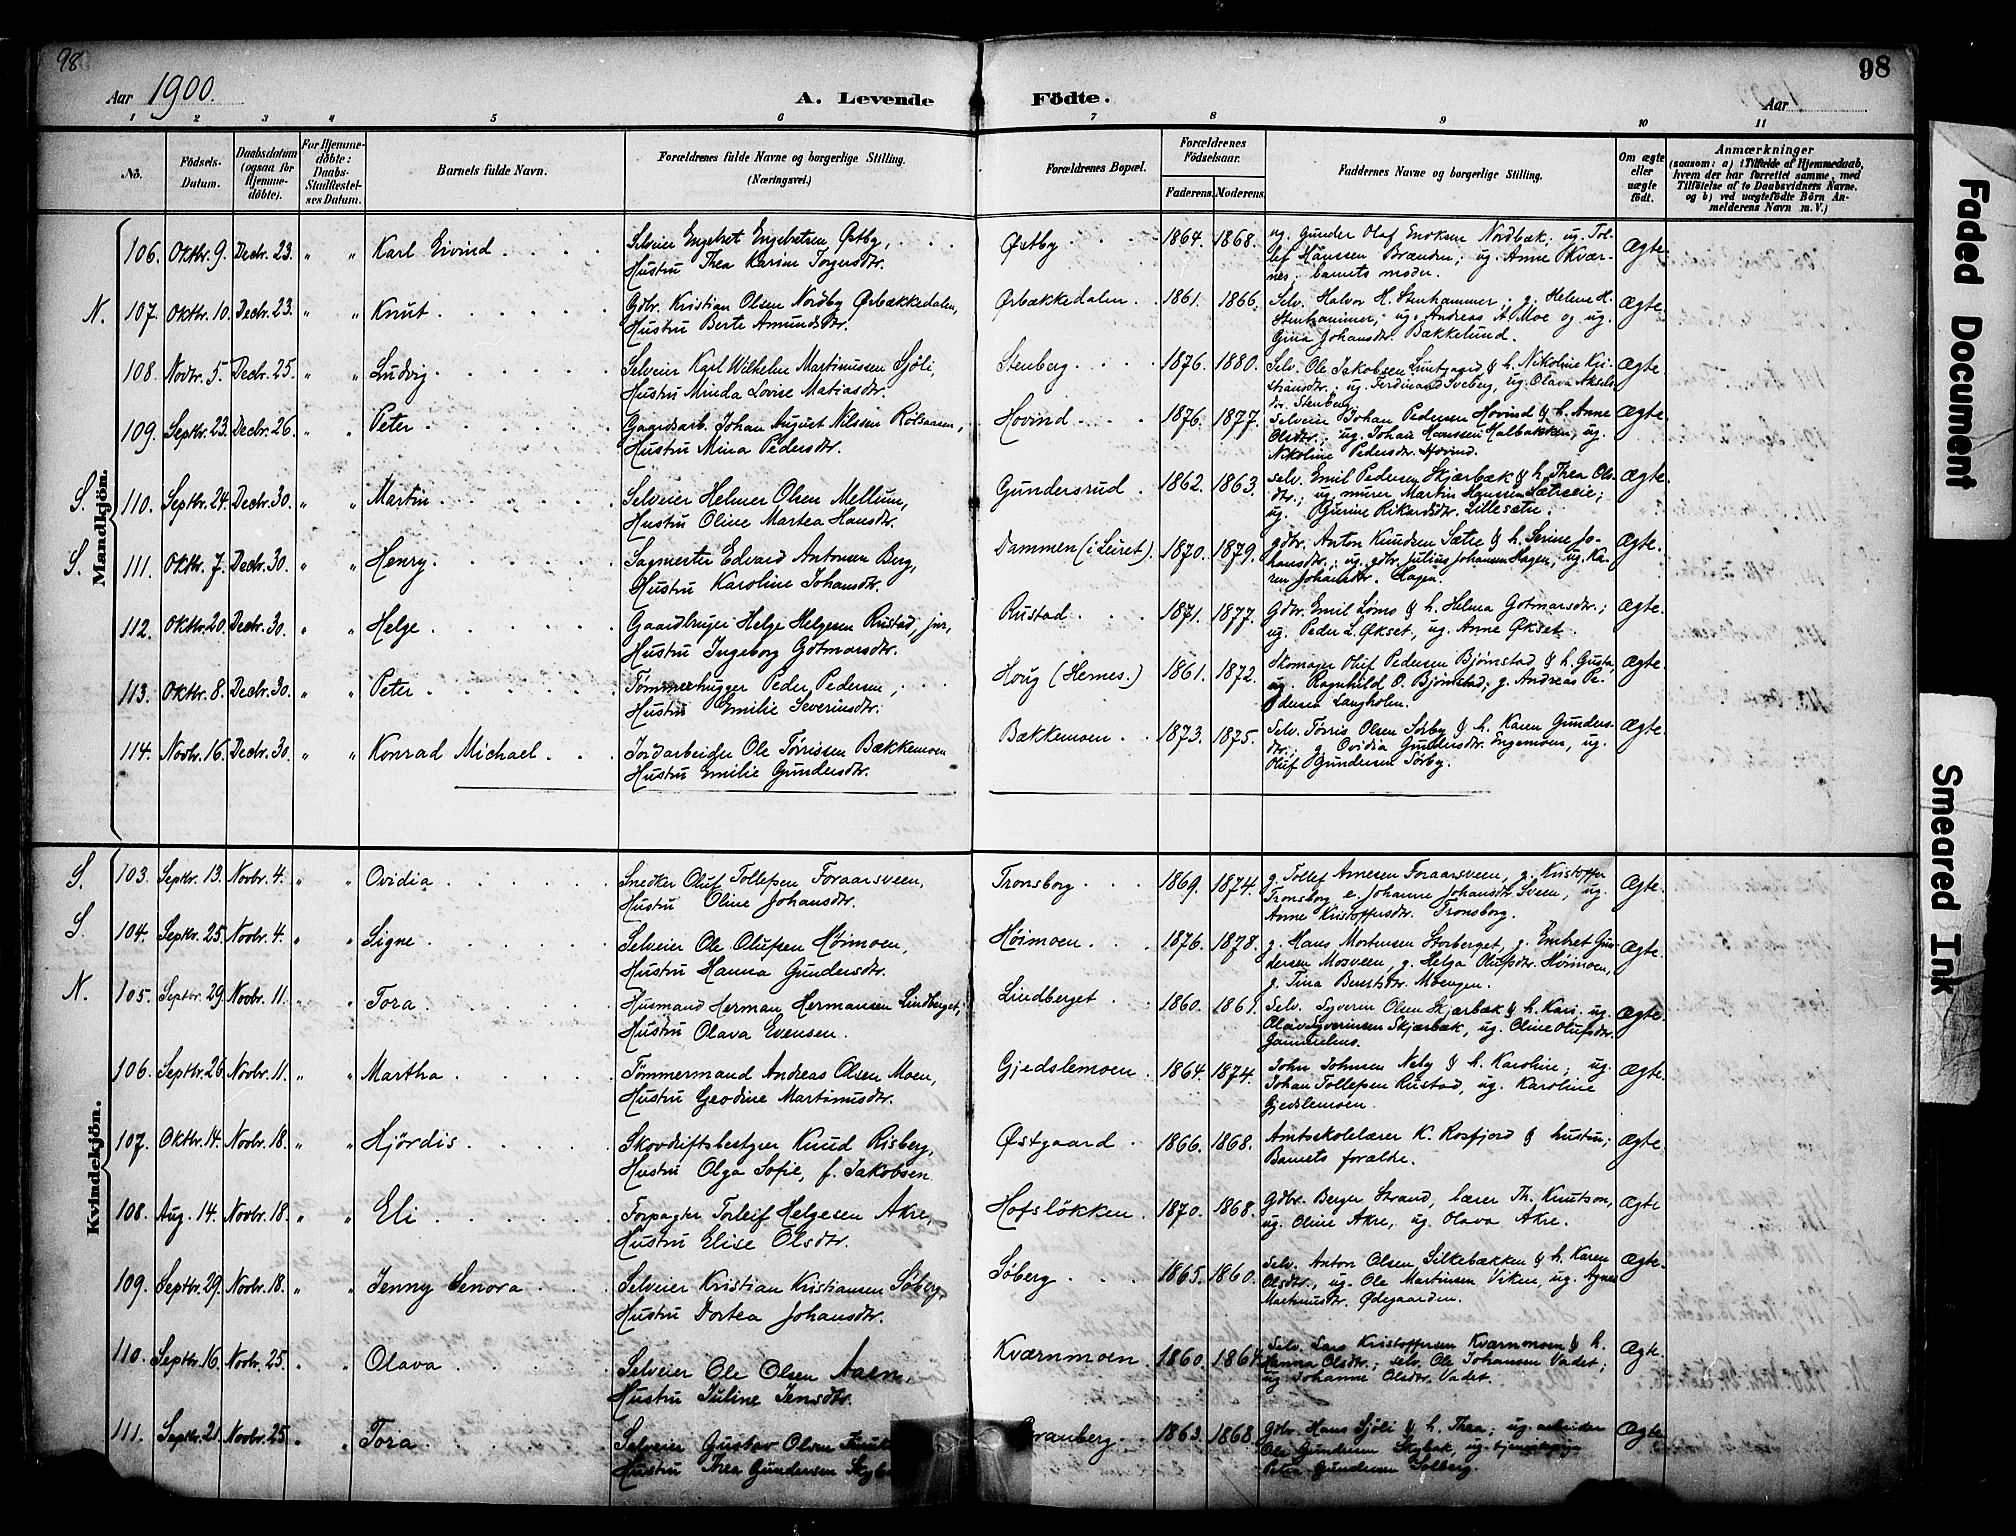 98
98
Aar 1900.
A. Levende Födte.
Aar
1 2 3 4 5 6 7 8 9 10 11
No.
Födsels-Datum.
Daabsdatum (ogsaa for Hjemmedöbte).
For Hjemmedöbte: Daabs-Stadfæstelses Datum.
Barnets fulde Navn.
Forældrenes fulde Navne og borgerlige Stilling. (Næringsvei.)
Forældrenes Bopæl.
Forældrenes Födselsaar.
Faderens. Moderens.
Faddernes Navne og borgerlige Stilling.
Om ægte eller uægte födt.
Anmærkninger
(saasom: a) i Tilfælde af Hjemmedaab, hvem der har forrettet samme, med Tilföielse af to Daabsvidners Navne, og b) ved uægtefödte Börn Anmelderens Navn m. V.)
Mandkjön.
106. Oktbr. 9. Decbr. 23. " " Karl Eivind
Selveier Engebret Engebretsen Østby,
Hustru Thea Karine Torgersdtr.
Østby 1864. 1868.
ug. Gunder Olaf Enoksen Nordbæk; ug. Tol-
lef Hanssen Brænden; ug. Anne Kvær-
nes; barnets moder.
Ægte.
N. 107. Oktbr. 10. Decbr. 23. " " Knut
Gdbr. Kristian Olsen Nordby Ørbækkedalen,
Hustru Berte Amundsdtr.
Ørbækkedalen. 1861. 1866.
Selv. Halvor H. Stenhammer; g. Helene H.
Stenhammer; ug. Andreas A. Moe og ug.
Gina Johansdtr. Bækkelund.
Ægte.
108. Novbr. 5. Decbr. 25. " " Ludvig
Selveier Karl Wilhelm Martinussen Sjöli,
Hustru Minda Lovise Matiasdtr.
Stenberg 1876. 1880.
Selv. Ole Jakobsen & h. Nikoline Kri-
stiansdtr.; ug. Ferdinand Sveberg, ug. Olava Aksels-
dtr. Stenberg.
Ægte
109. Septbr. 23. Decbr. 26. " " Peter
Gaardsarb. Johan August Nilssen Rölsaasen,
Hustru Mina Pedersdtr.
Hovind 1876. 1877.
Selveier Johan Pedersen Hovind & h. Anne
Olsdtr.; ug. Johan Hanssen Malbakken, ug.
Nikoline Pedersdtr. Hovind.
Ægte.
S. 110. Septbr. 24. Decbr. 30. " " Martin
Selveier Helmer Olsen Mellum,
Hustru Oline Martea Hansdtr.
Gundersrud 1862. 1863.
Selv. Emil Pedersen Skjærbæk & h. Thea Ols-
dtr.; ug. murer Martin Hanssen Sætreeie;
ug. Gurine Rikardsdtr. Lillesætre.
Ægte.
S. 111. Oktbr. 7. Decbr. 30. " " Henry
Sagmester Edvard Antonsen Berg,
Hustru Karoline Johansdtr.
Dammen (i Leiret). 1870. 1879.
Gdbr. Anton Knudsen Sætre & h. Serine Jo-
hansdtr.; ug. gdbr. Julius Johansen Hagen, ug. Ka-
ren Johansdtr. Hagen.
Ægte.
112. Oktbr. 20. Decbr. 30. " " Helge
Gaardbruger Helge Helgesen Rustad, jnr,
Hustru Ingeborg Gotmarsdtr.
Rustad 1871. 1877.
Gdbr. Emil Loms & h. Helma Gotmarsdtr.;
ug. Peder L. Økset, ug. Anne Økset.
Ægte.
113. Oktbr. 8. Decbr. 30. " " Peter
Tømmerhugger Peder Pedersen,
Hustru Emilie Severinsdtr.
Houg (Hernes.) 1861. 1872.
Skomager Oluf Pedersen Bjørnstad & h. Gusta,
ug. Ragnhild O. Bjørnstad, g. Andreas Pe-
dersen Langholen.
Ægte.
114. Novbr. 16. Decbr. 30. " " Konrad Michael
Jordarbeider Ole Tørrissen Bækkemoen
Hustru Emilie Gundersdtr.
Bækkemoen 1873. 1875.
Selv. Tørris Olsen Sørby & h. Karen Gunders-
dtr.; g. Ovidia Gundersdtr. Engemoen, ug.
Oluf Gundersen Sørby.
Ægte
Kvindekjön.
S. 103. Septbr. 13. Novbr. 4. " " Ovidia
Snedker Oluf Tollefsen Foraarsveen,
Hustru Oline Johansdtr.
Tronsborg 1869. 1874.
g. Tollef Arnesen Foraarsveen, g. Kristoffer
Tronsborg, e. Johanne Johansdtr. Sveen, ug.
Anne Kristoffersdtr. Tronsborg.
Ægte.
S. 104. Septbr. 25. Novbr. 4. " " Signe
Selveier Ole Olufsen Høimoen,
Hustru Hanna Gundersdtr.
Høimoen 1876. 1878.
g. Hans Mortensen Storberget, g. Embret Gun-
dersen Mosveen, g. Helga Olufsdtr. Høimoen,
g. Tina Berntsdtr. Moengen.
Ægte.
N. 105. Septbr. 29. Novbr. 11. " " Tora
Husmand Herman Hermansen Lindberget,
Hustru Olava Evensen.
Lindberget 1860. 1861.
Selv. Syverin Olsen Skjærbæk & h. Kari; ug.
Olav Syverinsen Skjærbæk, ug. Oline Olufsdtr.
Ægte.
106. Septbr. 26. Novbr. 11. " " Martha
Tømmermand Andreas Olsen Moen,
Hustru Geodine Martinusdtr.
Gjedslemoen 1864. 1874.
John Johnsen Neby & h. Karoline; ug.
Johan Tollefsen Rustad, ug. Karoline
Gjedslemoen.
Ægte.
107. Oktbr. 14. Novbr. 18. " " Hjördis
Skovdriftsbestyrer Knud Risberg,
Hustru Olga Sofie, f. Jakobsen.
Østgaard 1866. 1868.
Amtsskolelærer K. Rosfjord & hustru;
Barnets forældre.
Ægte.
108. Aug. 14. Novbr. 18. " " Eli
Forpagter Torleif Helgesen Akre,
Hustru Elise Olsdtr.
Hofsløkken. 1870. 1868.
Gdbr. Berger Strand, lærer Th. Knutson,
ug. Oline Akre, ug. Olava Akre.
Ægte
109. Septbr. 29. Novbr. 18. " " Jenny Senora
Selveier Kristian Kristiansen Søberg,
Hustru Dortea Johansdtr.
Søberg 1865. 1860.
Selv. Anton Olsen Silkebækken & h. Karen
Olsdtr., ug. Ole Martinsen Viken, ug. Agnes
Martinusdtr. Ødegaarden.
Ægte.
110. Septbr. 16. Novbr. 25. " " Olava
Selveier Ole Olsen Aasen,
Hustru Juline Jensdtr.
Kværnmoen. 1860. 1864.
Selv. Lars Kristoffersen Kværnmoen & h.
Hanna Olsdtr.; selv. Ole Johansen Vadet;
ug Johanne Olsdtr. Vadet.
Ægte.
111. Septbr. 21. Novbr. 25. " " Tora
Selveier Gustav Olsen
Hustru Thea Gundersen
Granberg 1863. 1868.
Gdbr. Hans Sjöli & h. Thea; ug. arbeider
Ole Gundersen Skybak, ug. tjenestepige
Petra Gundersen Solberg.
Ægte
Faded Document
Smeared Ink